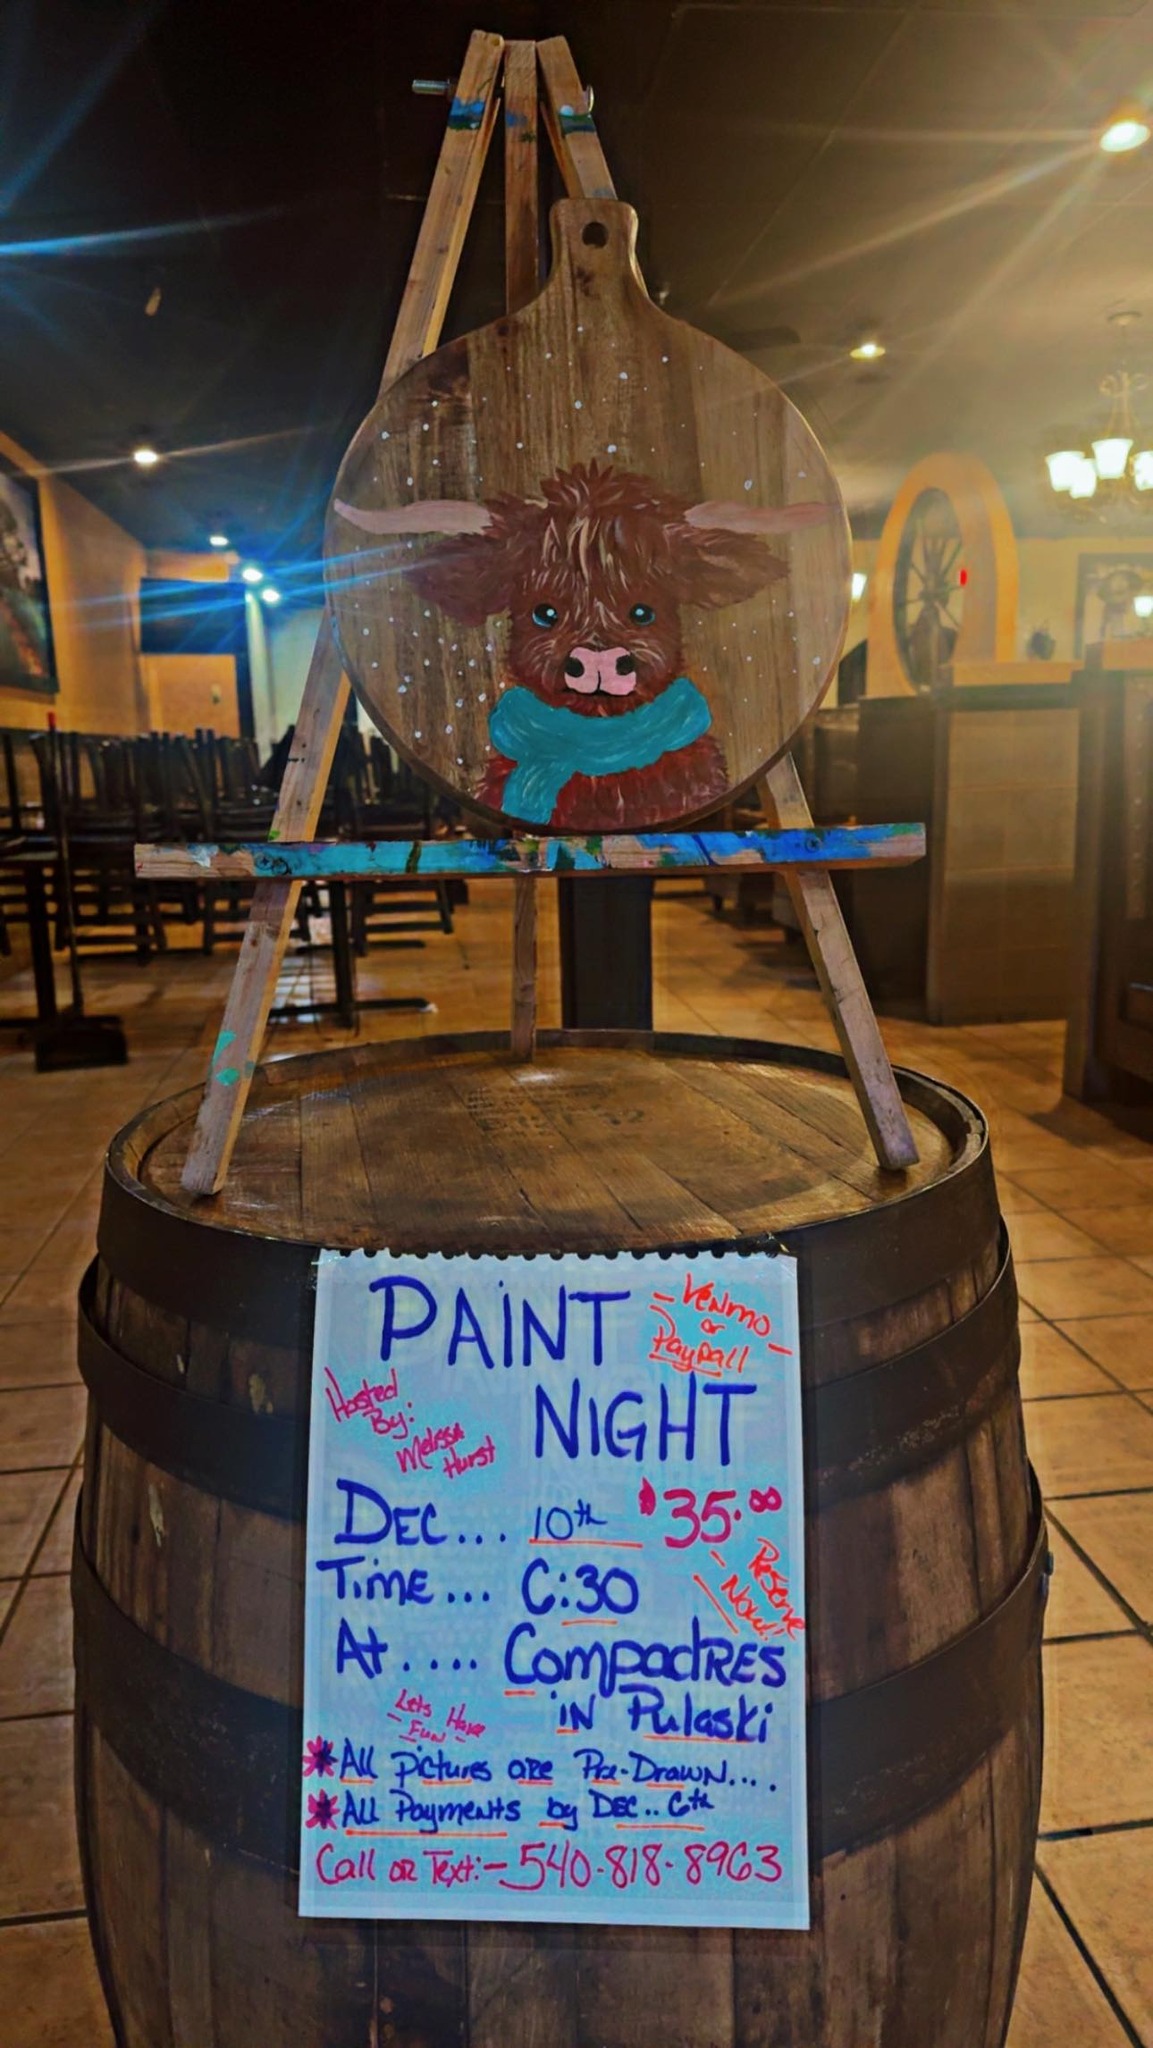 PAINT
NIGHT
- Venmo -
or
Paypall
Hosted
By:
Melissa
Hurst
DEC... 10th
$35.00
Time... 6:30
- Reserve
Now!!
At.... Compadres
in Pulaski
- Lets Have
Fun
* All Pictures are Pre-Drawn....
* All Payments by Dec.. 6th
Call or Text:- 540-818-8963